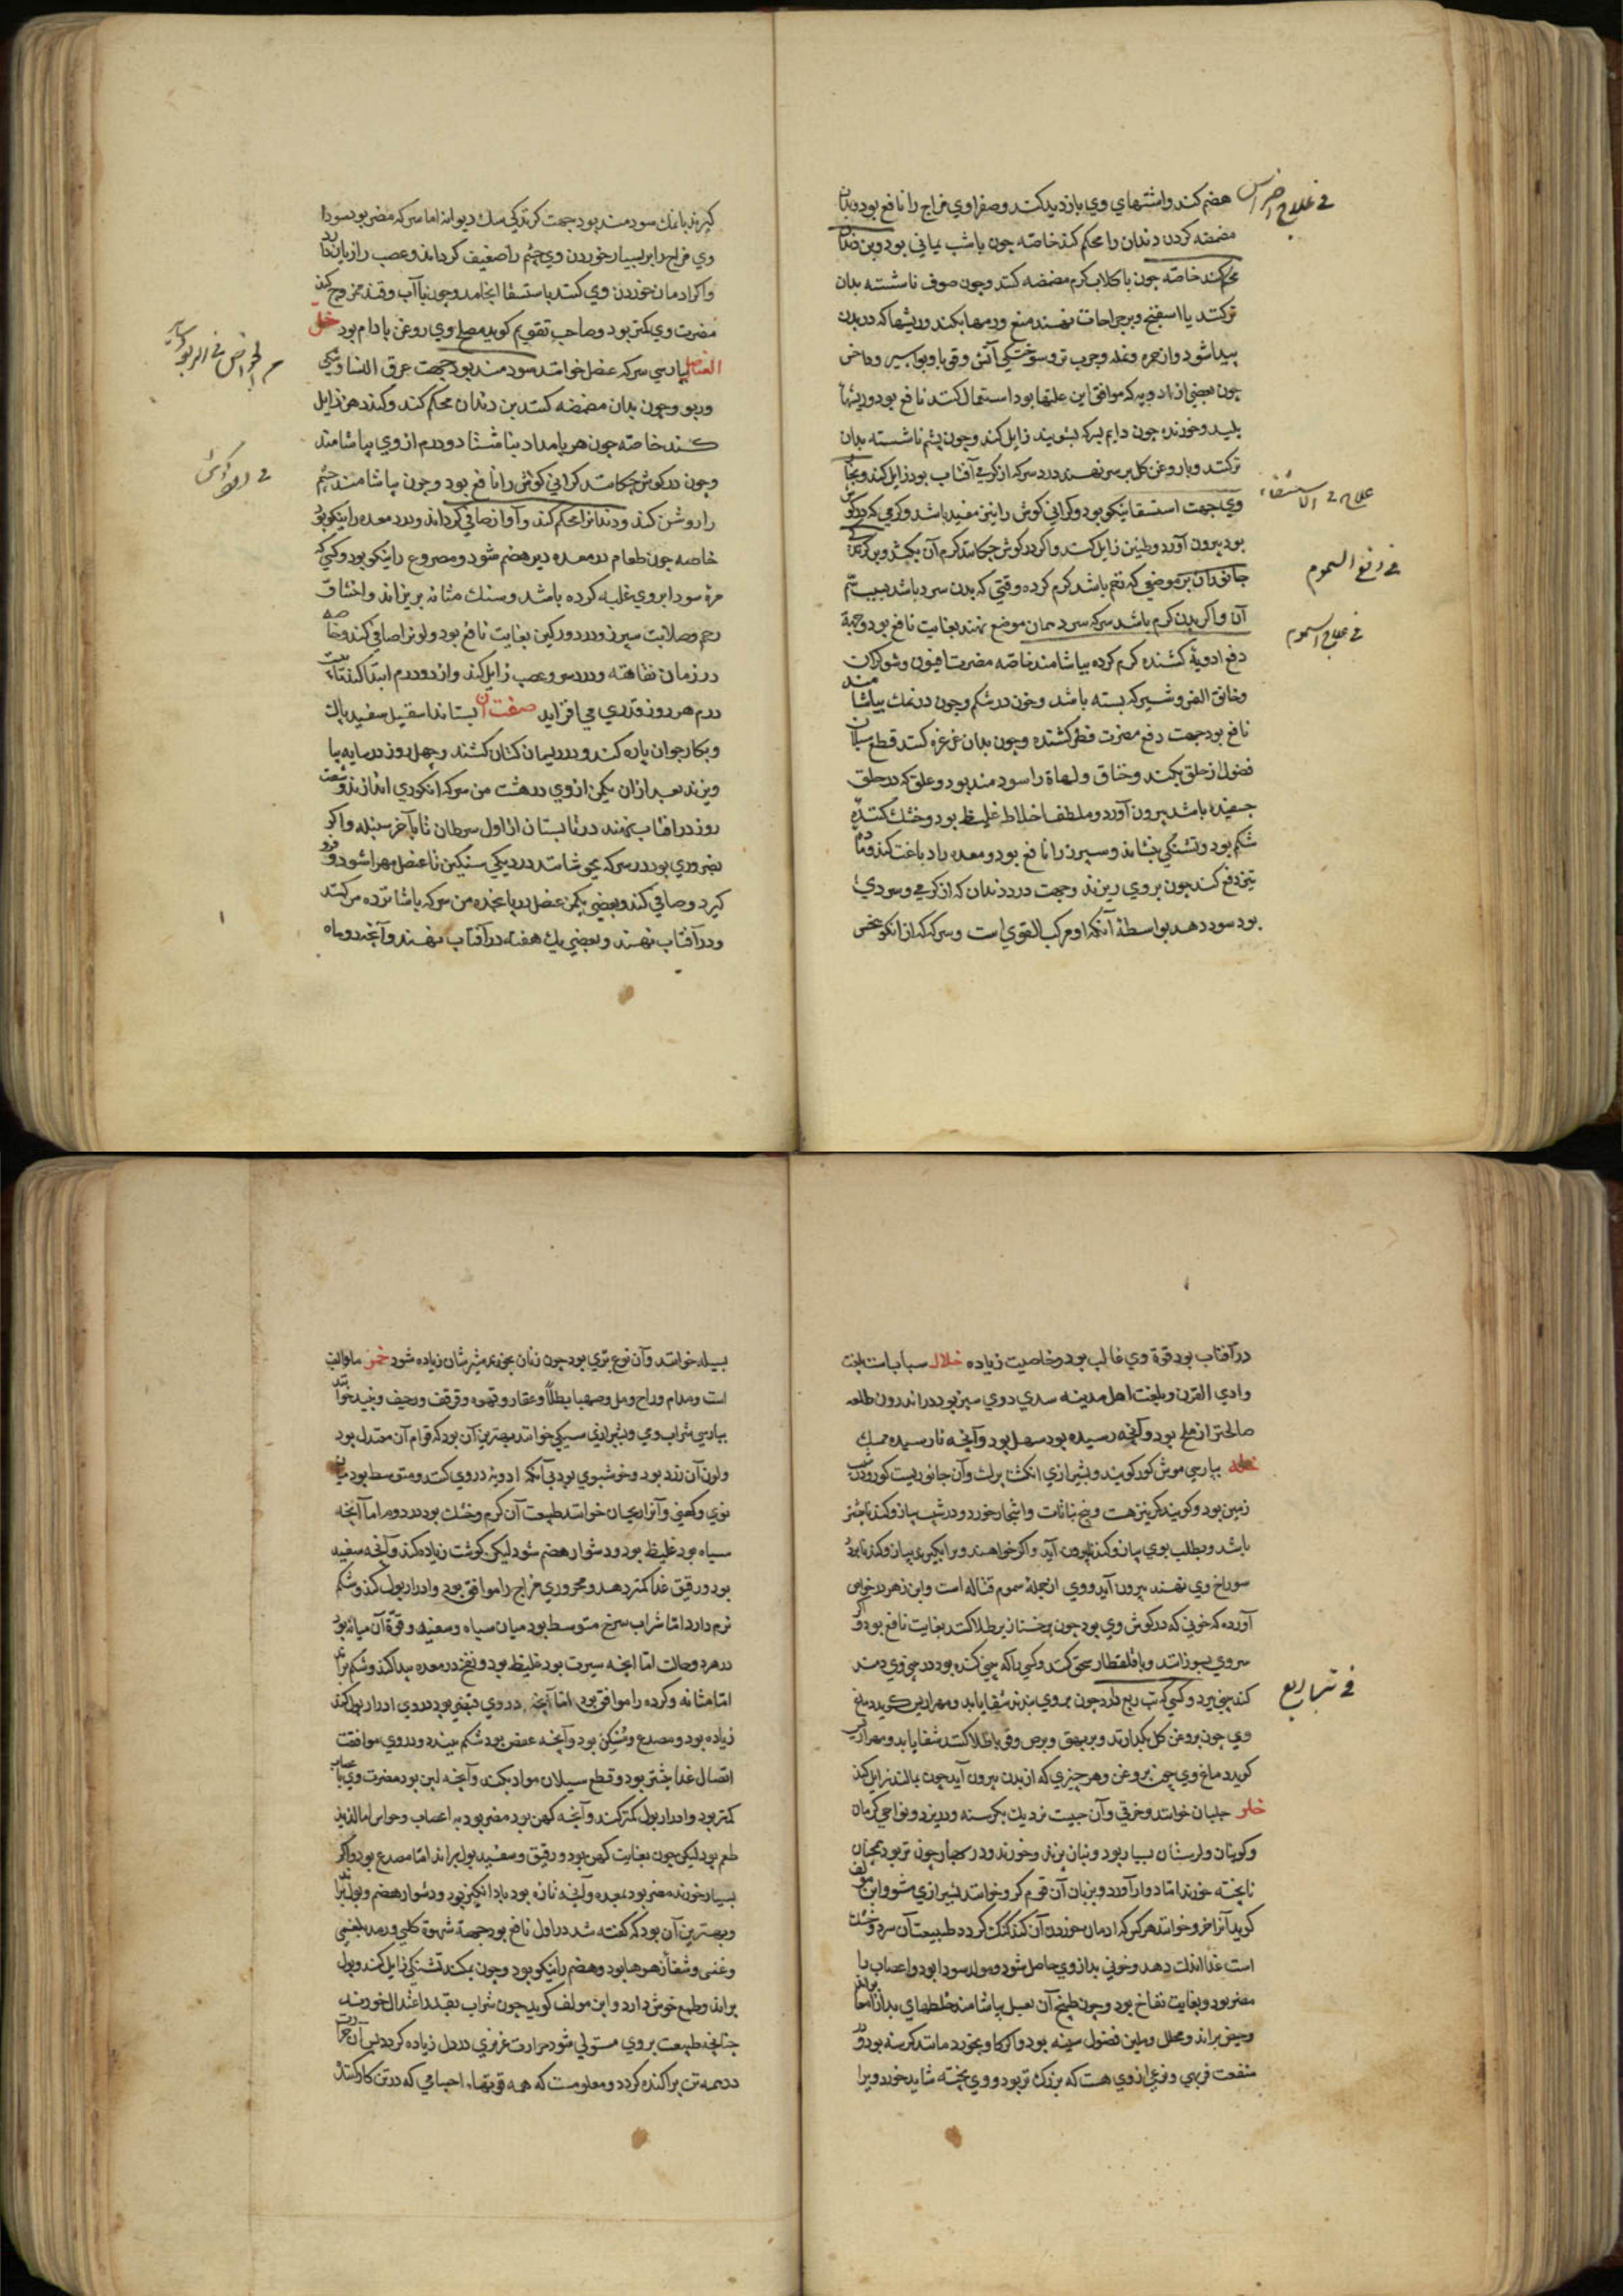 هضم کند و اشتهای وی بازدید کند و صفراوی مزاج را نافع بود و بدان
مضمضه کردن دندان را محکم کند خاصه چون با شب یمانی بود و بن دندان
محکم کند خاصه چون با کلاب کرم مضمضه کنند و چون صوف ناشسته بدان
تر کنند یا اسفنج و بر جراحات نهند منع ورمها بکند و ریشها که در بدن
پیدا شود و از حمره و نمله و جرب تر و سوختگی آتش و قوبا و بواسیر و داخس
چون بعضی از ادویه که موافق این علتها بود استعمال کنند نافع بود و ریشها
پلید و خورنده چون دایم بسرکه بشویند زایل کند و چون پشم ناشسته بدان
تر کنند و با روغن کل بر سر نهند درد سر که از کرمی آفتاب بود زایل کند و بخار
وی جهت استسقا نیکو بود و کرانی کوش را نیز مفید باشد و کرمی که در کوش
بود بیرون آورد و طنین زایل کند و اکر در کوش چکانند کرم آن بکشد و بر کزندکی
جانوران بر موضعی که نهم باشد کرم کرده وقتی که بدن سرد باشد بسبب سم
آن و اکر بدن کرم باشد سرکه سرد بدان موضع نهند بغایت نافع بود و جهة
دفع ادویهٔ کشنده کرم کرده بیاشامند خاصه مضرت افیون و شوکران
و خانق النمر و شیر که بسته باشد و خون در شکم و چون در نمک بیاشامند
نافع بود جهت دفع مضرت فطر کشنده و چون بدان غرغره کنند قطع سیلان
فضول از حلق بکند و خناق و لهاة را سودمند بود و علق که در حلق
جسفیده باشد بیرون آورد و ملطف اخلاط غلیظ بود و خشک کننده
شکم بود و تشنکی بنشاند و سپرز را نافع بود و معده را دباغت کند و دم
نیز دفع کند چون بر وی ریزند و جهت درد دندان که از کرمی و سردی
بود سود دهد بواسطهٔ آنکه او مرکب القوی است و سرکه که از انکور محض
فی علاج اضراس
علاج فی الاستسقاء
فی دفع السموم
فی علاج السموم
کیرند با نمک سودمند بود جهت کزندکی سک دیوانه اما سرکه مضر بود سودا
وی مزاج را بر بسیار خوردن وی چشم را ضعیف کرداند و عصب را زیان دارد
و اکر ادمان خوردن وی کنند باستسقا انجامد و چون با آب و قند ممزوج کنند
مضرت وی کمتر بود و صاحب تقویم کوید مصلح وی روغن بادام بود خل
العنصل بپارسی سرکه عنصل خوانند سودمند بود جهت عرق النسا و
و ربو و چون بدان مضمضه کنند بن دندان محکم کند و کند دهن زایل
کند خاصه چون هر بامداد بناشتا دو درم از وی بیاشامند
و چون در کوش چکانند کرانی کوش را نافع بود و چون بیاشامند چشم
را روشن کند و دندانرا محکم کند و آواز صافی کرداند و درد معده را نیکو بود
خاصه چون طعام در معده دیر هضم شود و مصروع را نیکو بود و کسی که
مرة سودا بر وی غلبه کرده باشد و سنک مثانه بریزاند و اختناق
رحم و صلابت سپرز و درد ورکین بغایت نافع بود و لونرا صافی کند و خاصه
در زمان نقاهت و درد سر و عصب زایل کند و از دو درم ابتدا کنند تا
درم هر روز قدری می افزاید صفت آن بستانند اسقیل سفید پاک
و بکارد جوان پاره کنند و در ریسمان کتان کشند و چهل روز در سایه بیا
ویزند بعد از ان یکمن از وی در هشت من سرکه انکوری اندازند و شصت
روز در افتاب نهند در تابستان از اول سرطان تا بآخر سنبله و اکر
ضروری بود در سرکه بجوشانند در دیکی سنکین تا عنصل مهرا شود و فرو
کیرد و صافی کنند و بعضی یکمن عنصل در پانزده من سرکه یا شانزده من کنند
و در آفتاب نهند و بعضی یک هفته در آفتاب نهند و آنچه دو ماه
در آفتاب بود قوة وی غالب بود و خاصیت زیاده خلال سیاب است بلغت
وادی القری و بلغت اهل مدینه سدی دوی سبز بود در اندرون طلعه
صالحتر از بلح بود و آنچه رسیده بود سهل بود و آنچه نارسیده ممسک
خلد بپارسی موش کور کویند و بشیرازی انکشت برک و آن جانوریست کور و در زیر
زمین بود و کویند کریزنده است و بیخ نباتات و اشجار خورد و در شب پیاز و کندنا بیشتر
باشد و بطلب بوی پیاز و کندنا بیرون آید و اکر خواهند ویرا بکیرند پیاز و کندنا بر در
سوراخ وی نهند بیرون آید و وی از جملهٔ سموم قتاله است و ابن زهر در خواص
آورده که خونی که در کوش وی بود چون بر خنازیر طلا کنند بغایت نافع بود و اکر
سر وی بسوزانند و با قلقطار سحق کنند و کسی را که بینی کنده بود در بینی وی دمند
کند بینی ببرد و کسی که تب ربع دارد چون بر وی بندند شفا یابد و مهراریس کوید دماغ
وی چون بروغن کل بکدازند و بر بهق و برص و قوبا طلا کنند شفا یابد و مهراریس
کوید دماغ وی چون بروغن و هر چیزی که از بدن بیرون آید چون بمالند زایل کند
خلر جلبان خوانند و خرقی و آن حبیست نزدیک بکرسنه و در یزد و نواحی کرمان
و کوبنان و لرستان بسیار بود و بنان پزند و خورند و در بهار چون تر بود همچنان
ناپخته خورند اما دوار آورد و بزبان آن قوم کرو خوانند بشیرازی شو و ابن مؤلف
کوید آنرا خرو خوانند هر کس که ادمان خوردن آن کند کنک کردد طبیعت آن سرد و خشک
است غذا اندک دهد و خونی بد از وی حاصل شود و مولد سودا بود و اعصاب را
مضر بود و بغایت نفاخ بود و چون طبیخ آن بعسل بیاشامند خلطهای بد از امعا براند
و حیض براند و محلل و ملین فضول سینه بود و اکر کاو بخورد مانند کرسنه بود و در
منفعت فربهی و نوعی از وی هست که بزرک تر بود و وی پخته شاید خورد و ویرا
فی تب ربع
بسیله خوانند و آن نوع بری بود چون زنان بخورند شیر شان زیاده شود خمر ماء العنب
است و مدام و راح و مل و صهبا و طلا و عقار و قهوه و قرقف و رحیق و نبید خوانند
بپارسی شراب و می و بشیرازی سیکی خوانند بهترین آن بود که قوام آن معتدل بود
و لون آن زرد بود و خوشبوی بود بی آنکه ادویه در وی کنند و متوسط بود میان
نوی و کهنی و آنرا ریحان خوانند طبیعت آن کرم و خشک بود در دوم اما آنچه
سیاه بود غلیظ بود و دشوار هضم شود لیکن کوشت زیاده کند و آنچه سفید
بود و رقیق غذا کمتر دهد و محروری مزاج را موافق بود و ادرار بول کند و شکم
نرم دارد اما شراب سرخ متوسط بود میان سیاه و سفید و قوة آن میانه بود
در هر دو حالت اما آنچه شیرین بود غلیظ بود و نفخ در معده پیدا کند و شکم براند
اما مثانه و کرده را موافق بود اما آنچه در وی قبضی بود در وی ادرار بول کند
زیاده بود و مصدع و مسکن بود و آنچه عفص بود شکم ببندد و در وی موافقت
اتصال غذا بیشتر بود و قطع سیلان مواد بکند و آنچه لین بود مضرت وی باعصاب
کمتر بود و ادرار بول کمتر کند و آنچه کهن بود مضر بود به اعصاب و حواس اما لذیذ
طعم بود لیکن چون بغایت کهن بود و رقیق و سفید بول براند اما مصدع بود و اکر
بسیار خورند مضر بود بمعده و آنچه تازه بود بادانکیز بود و دشوار هضم و بول براند
و بهترین آن بود که کفته شد در اول نافع بود جهة شهوة کلبی و رمد بلغمی
و غشی و شفا زهرها بود و هضم را نیکو بود و چون بمکند تشنکی زایل کند و بول
براند و طبع خوش دارد و ابن مولف کوید چون شراب بقدر اعتدال خورند
چنانچه طبیعت بر وی مستولی شود حرارت غریزی در دل زیاده کردد پس آن حرارت
در همه تن پراکنده کردد و معلومست که همه قوتهاء اجسامی که در تن کار کنند